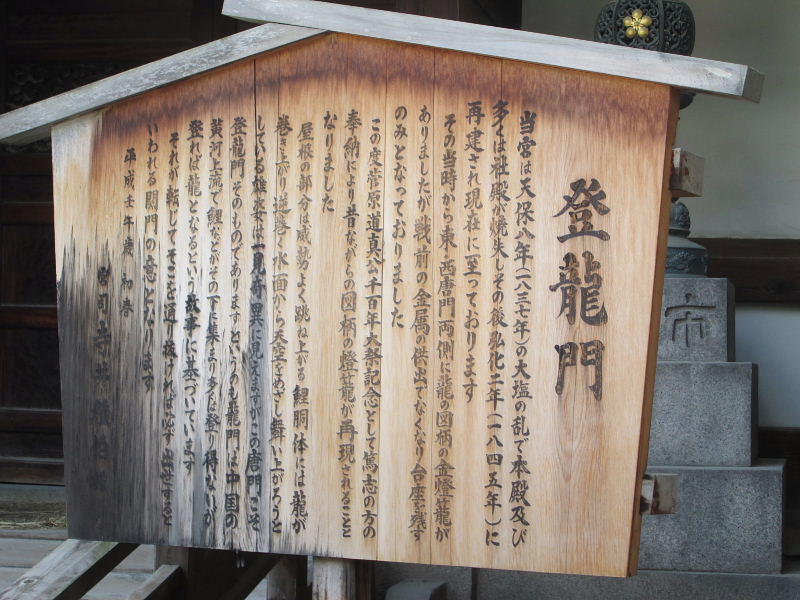 登龍門
当宮は天保八年(一八三七年)の大塩の乱で本殿及び
多くは社殿が焼失しその後弘化二年(一八四五年)に
再建され現在に至っております
その当時から東・西唐門両側に龍の図柄の金燈籠が
ありましたが戦前の金属の供出でなくなり台座を残す
のみとなっておりました
この度菅原道真公千百年大祭記念として篤志の方の
奉納により昔ながらの図柄の燈籠が再現されることと
なりました
屋根の部分は威勢よく跳ね上がる鯉胴体には龍が
巻き上がり逆巻く水面から天空をめざし舞い上がろうと
している雄姿は一見奇異に見えますがこの唐門こそ
登龍門そのものでありますというのも龍門は中国の
黄河上流で鯉などがその下に集まり多くは登り得ないが
登れば龍となるという故事に基づいています
それが転じてそこを通り抜ければ必ず出世すると
いわれる関門の意となります
平成壬午歳 初春
宮司 寺井